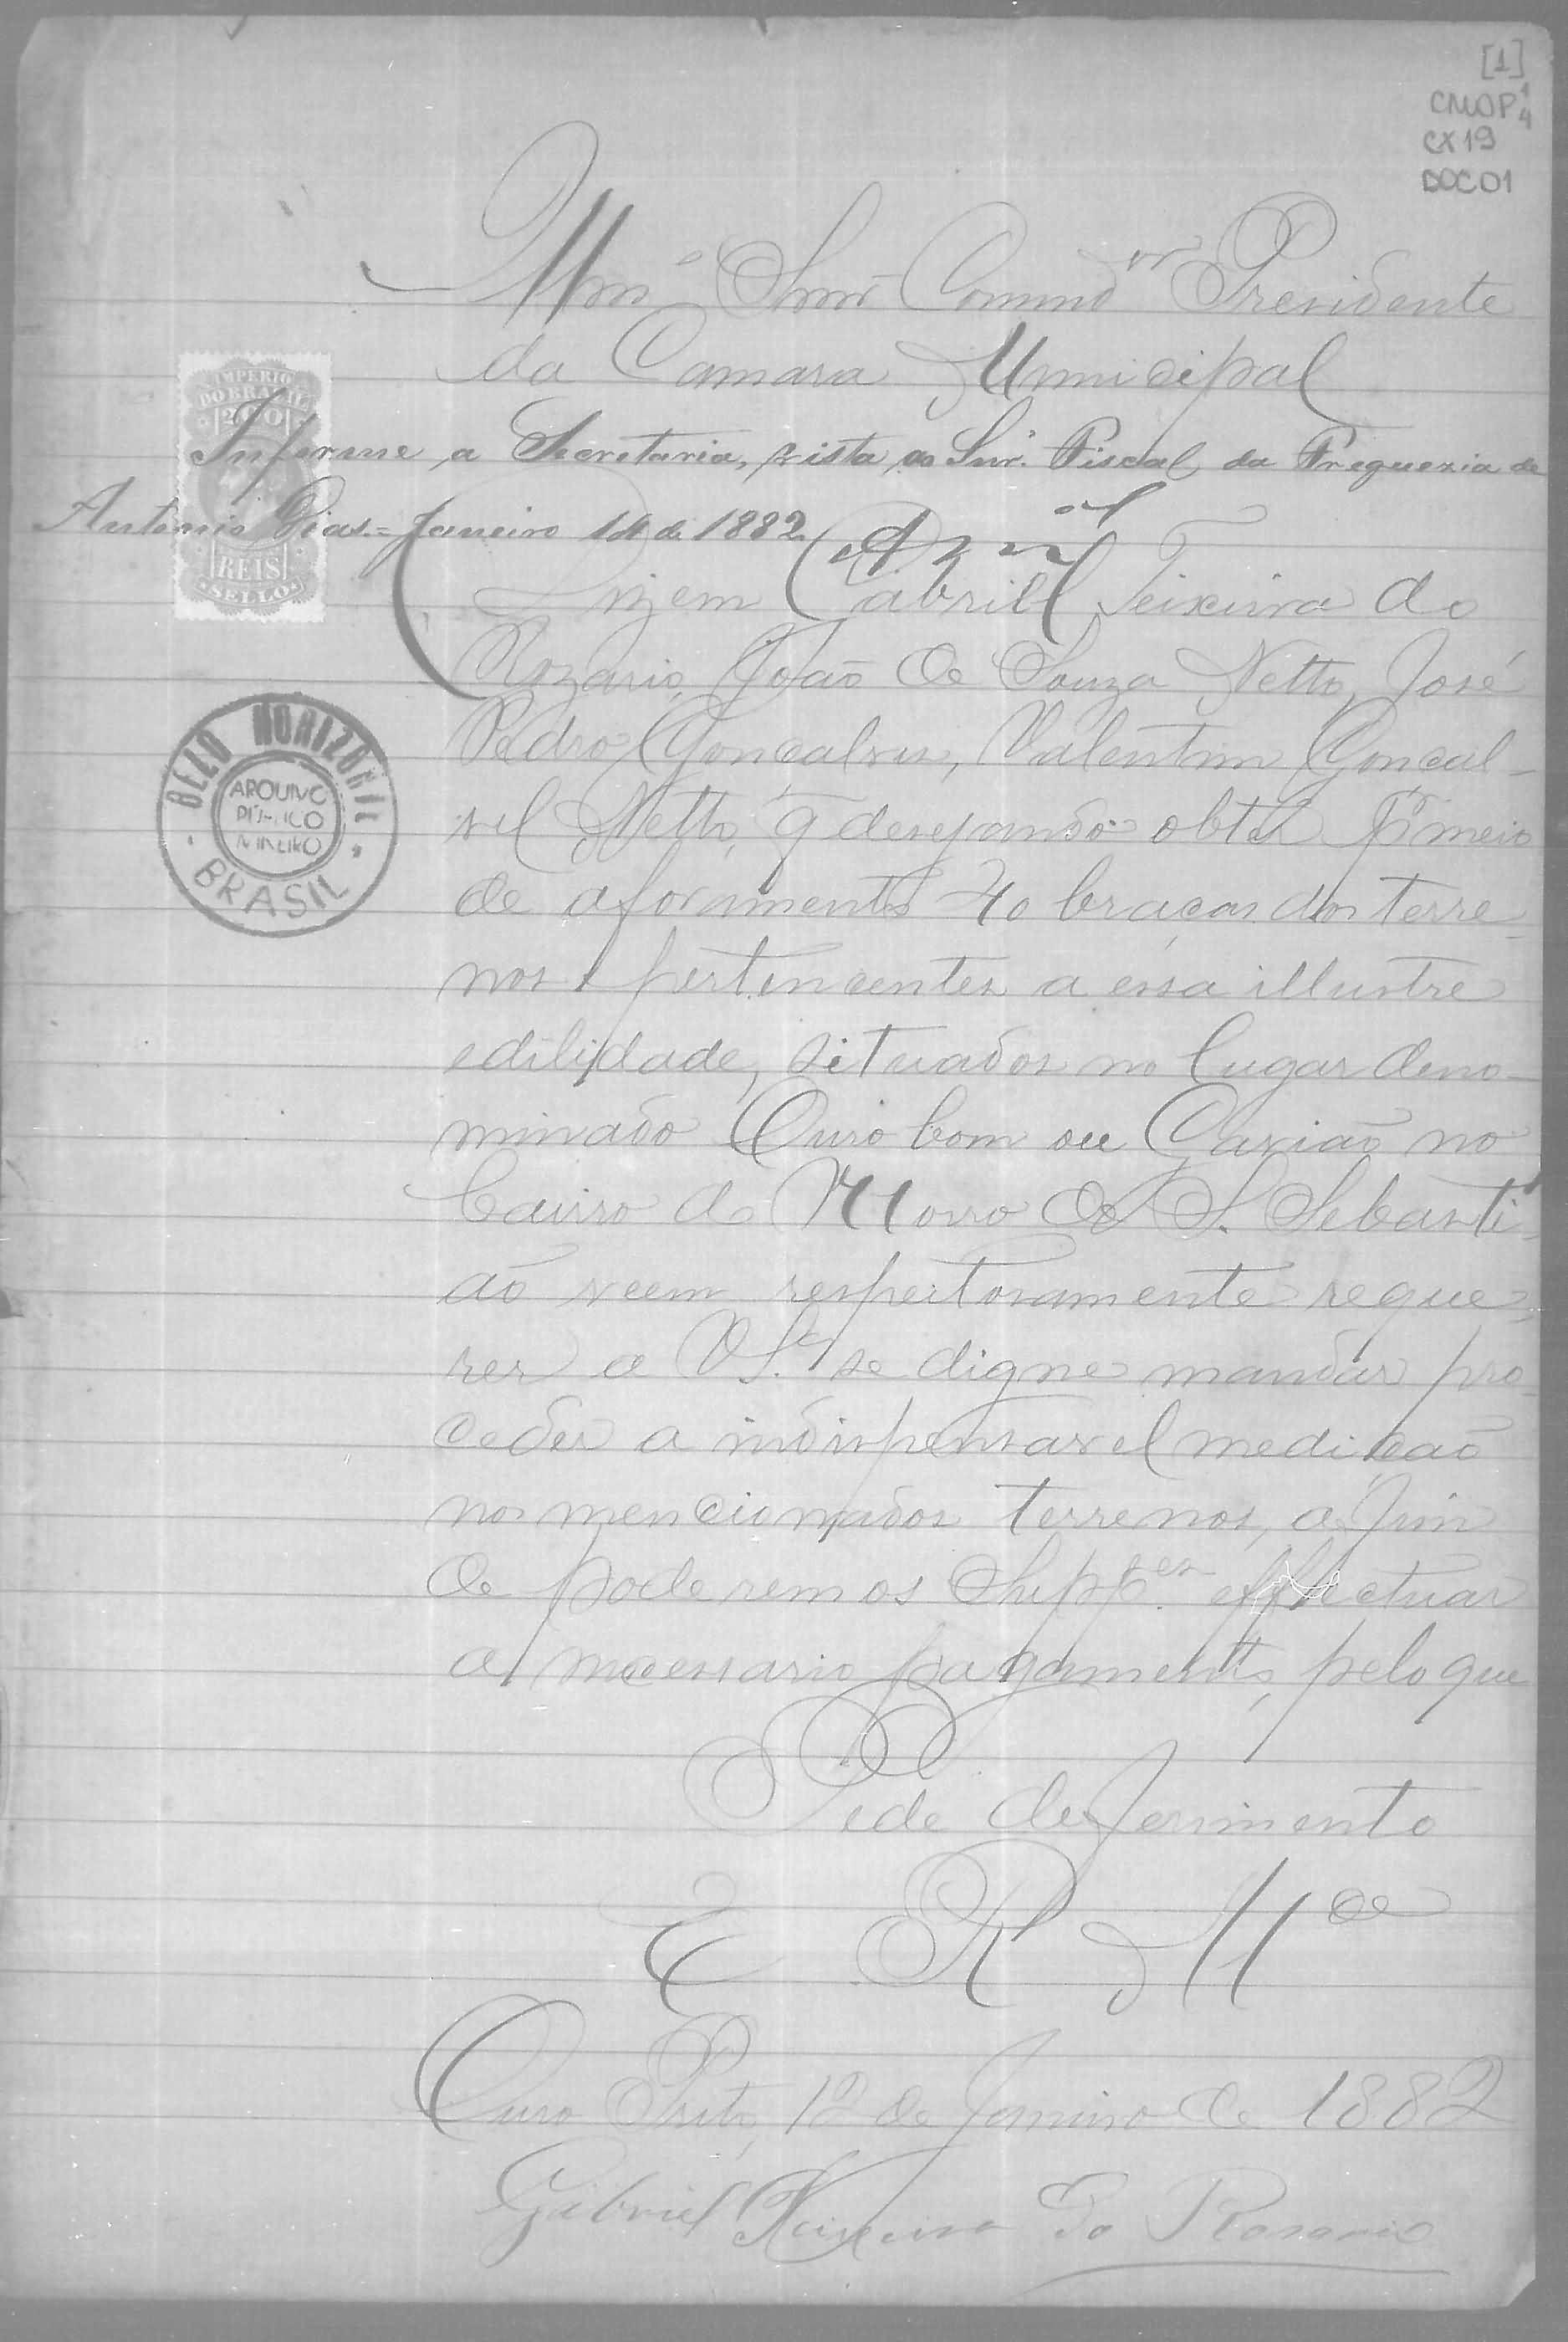 [1]
CMOP 1/4
CX19
DOC01
Illmo Snr Commdor Presidente
da Camara Municipal
IMPERIO
DO BRAZIL
200
REIS
SELLO
Informe a Secretaria, vista ao Snr. Fiscal da Freguezia de
Antonio Dias. Janeiro 14 de 1882
Dizem Gabriel Teixeira do
Rozario, João de Souza Netto, José
Pedro Gonçalves, Valentim Gonçal-
ves Netto, q desejando obter pr meio
de aforamento 40 braças dos terre-
nos pertencentes a essa illustre
edilidade, situados no lugar deno-
minado Ouro bom ou no
bairro do Morro de S. Sebasti-
ão veem respeitosamente reque-
rer a V Sa. se digne mandar pro-
ceder a indispensavel medição
nos mencionados terrenos, a fim
de poderem os Suppes. effectuar
o necessario pagamento, pelo que
Pede deferimento
E R Mce
Ouro Preto, 12 de Janeiro de 1882
Gabriel Teixeira do Rosario
BELLO HORIZONTE
ARQUIVO
PUBLICO
MINEIRO
BRASIL